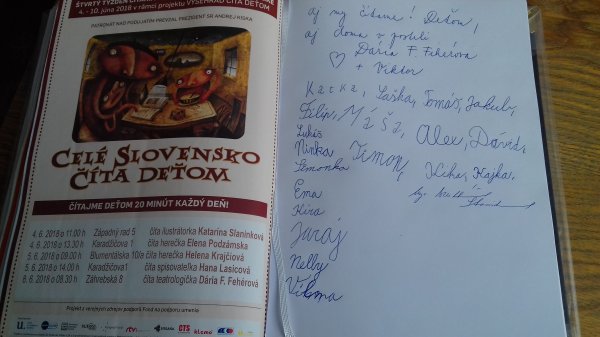 ŠTVRTÝ TÝŽDEŇ
4. - 10. júna 2018 v rámci projektu VYŠEHRAD ČÍTA DEŤOM
PATRONÁT NAD PODUJATÍM PREVZAL PREZIDENT SR ANDREJ KISKA
CELÉ SLOVENSKO
ČÍTA DEŤOM
ČÍTAJME DEŤOM 20 MINÚT KAŽDÝ DEŇ!
4. 6. 2018 o 11.00 Západný rad 5 číta ilustrátorka Katarína Slaninková
4. 6. 2018 o 13.30 Karadžičova 1 číta herečka Elena Podzámska
5. 6. 2018 o 09.00 Blumentálska 10/a číta herečka Helena Krajčiová
5. 6. 2018 o 14.00 Karadžičova1 číta spisovateľka Hana Lasicová
8. 6. 2018 o 08.30 Záhrebská 8 číta teatrologička Dária F. Fehérová
Projekt z verejných zdrojov podporil Fond na podporu umenia
aj my čítame! Deťom,
aj doma v posteli
Dária F. Fehérová
+ Viktor
Katka, Saška, Tomáš, Jakub,
Filip, Máša, Alex, Dávid,
Lukáš
Ninka Timon, Kika, Kajka,
Simonka
Ema
Kira
Juraj
Nelly
Vilma